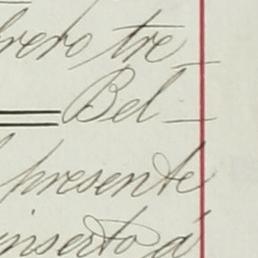 brero tre_
Bel_
presente
inserto á